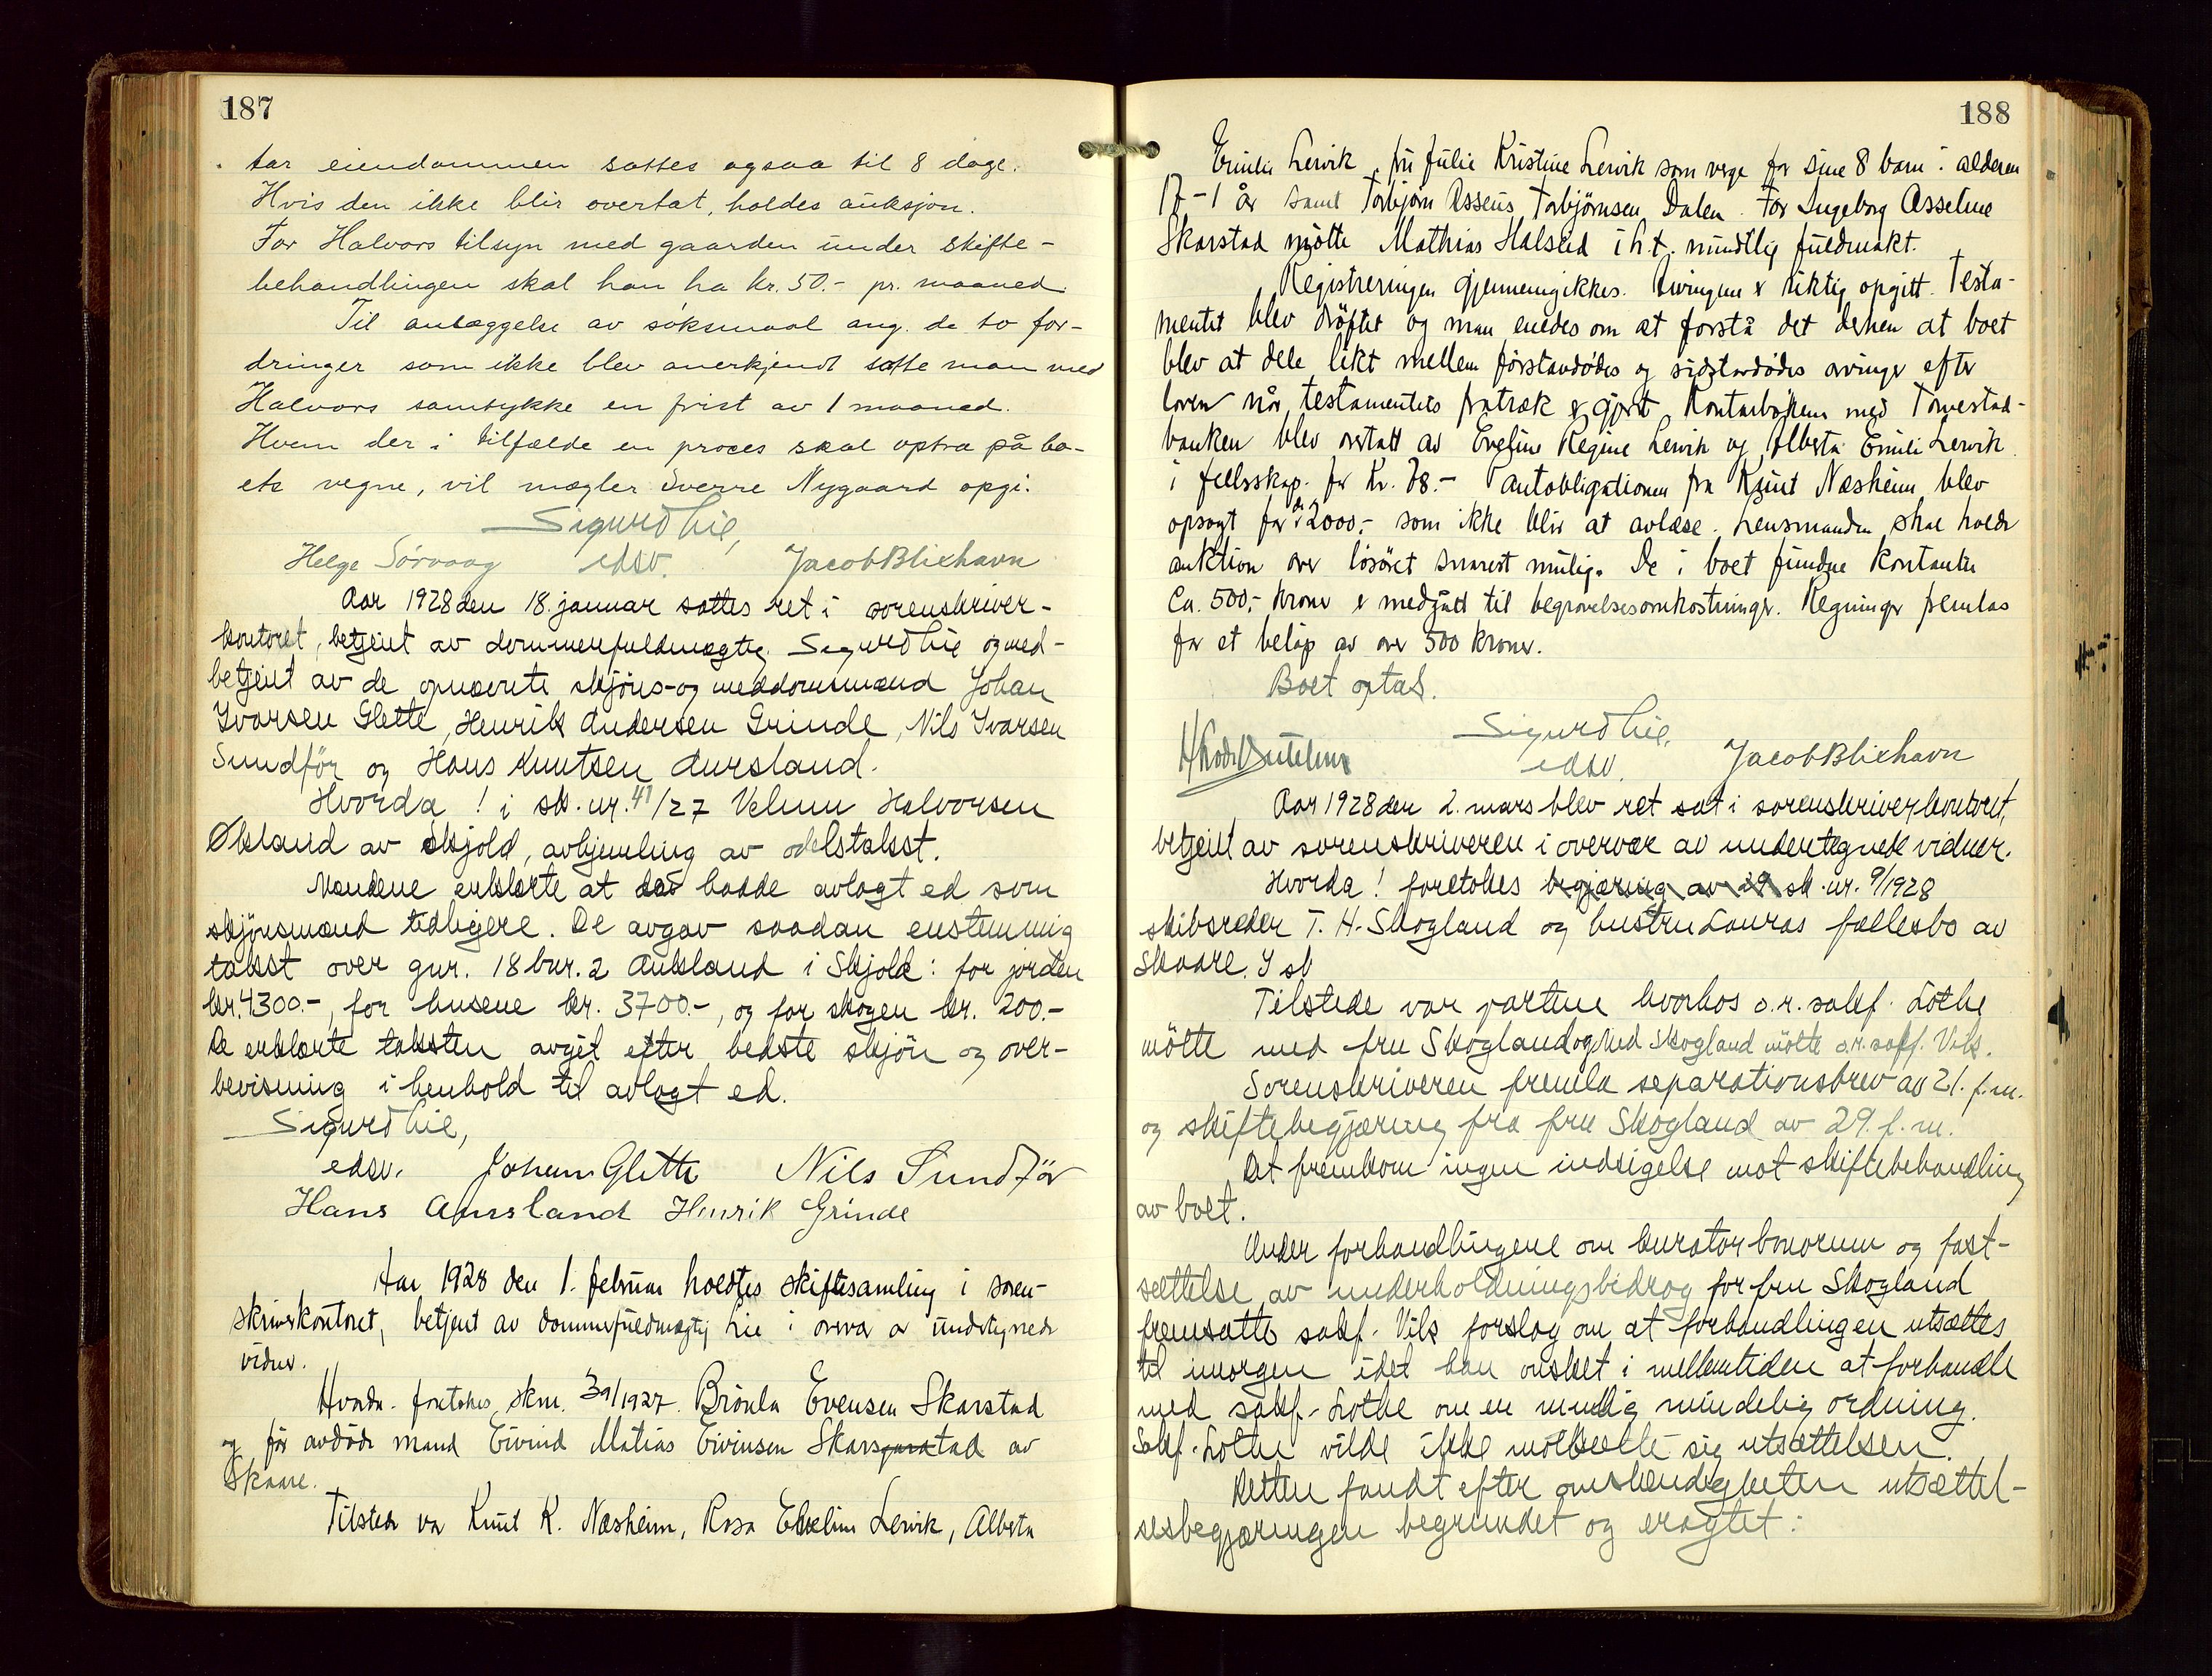 187
tar eiendommen sattes ogsaa til 8 dage.
Hvis den ikke blir overtat, holdes auksjon.
For Halvors tilsyn med gaarden under skifte-
behandlingen skal han ha kr. 50.- pr. maaned.
Til anlæggelse av søksmaal ang. de to for-
dringer som ikke blev anerkjendt satte man med
Halvors samtykke en frist av 1 maaned.
Hvem der i tilfælde en proces skal optræ på bo-
ets vegne, vil mægler Sverre Nygaard opgi.
Sigurd Lie,
Helge Sørvaag edsv. Jacob Blixhavn
Aar 1928 den 18. januar sattes ret i sorenskriver-
kontoret, betjent av dommerfuldmægtig Sigurd Lie og med-
betjent av de opnævnte skjøns- og meddomsmænd Johan
Ivarsen Glette, Henrik Andersen Grinde, Nils Ivarsen
Sundför og Hans Knutsen Aursland.
Hvorda! i sk. nr. 41/27 Velum Halvorsen
Øksland av Skjold, avhjemling av odelstakst.
Mændene erklærte at hadde avlagt ed som
skjønsmænd tidligere. De avgav saadan enstemmig
takst over gnr. 18 bnr. 2 Auksland i Skjold: for jorden
kr. 4300.-, for husene kr. 3700.-, og for skogen kr. 200.-
De erklærte taksten avgit efter bedste skjøn og over-
bevisning i henhold til avlagt ed.
Sigurd Lie,
edsv. Johan Glette Nils Sundför
Hans Aursland Henrik Grinde
Aar 1928 den 1. februar holdtes skiftesamling i soren-
skriverkontoret, betjent av dommerfuldmægtig Lie i overvær av undertegnede
vidner.
Hvorda. foretokes sknr. 39/1927. Brönla Evensen Skarstad
og før avdöde mand Eivind Matias Eivinsen Skarstad av
Skaare.
Tilstede var Knut K. Næsheim, Rosa Evelin Lervik, Alberta
188
Emilie Lervik, fru Julie Kristine Lervik som verge for sine 8 barn i alderen
17-1 år samt Torbjörn Asseus Torbjörnsen Dalen. For Ingeborg Asseline
Skarstad mötte Mathias Halseid i h.t. mundtlig fuldmakt.
Registreringen gjennemgikkes. Arvingene er riktig opgitt. Testa-
mentet blev dröftet og man enedes om at forstå det derhen at boet
blev at dele likt mellem förstavdödes og sidstavdödes arvinger efter
loven når testamentets fratræk er gjort. Kontrabøken med Torvestad-
banken blev overtatt av Eveline Regine Lervik og Alberta Emilie Lervik
i fellesskap for Kr. 78.- Pantobligationen fra Knut Næsheim blev
opsagt for de 2000,- som ikke blir at avlæse. Lensmanden skal holde
auktion over lösöret snarest mulig. De i boet fundne kontanter
Ca. 500,- kroner er medgått til begravelsesomkostninger. Regninger fremlas
for et belöp av over 500 kroner.
Boet optas.
Sigurd Lie,
edsv. Jacob Blixhavn
Aar 1928 den 2. mars blev ret sat i sorenskriverkontoret,
betjent av sorenskriveren i overvær av undertegnede vidner.
Hvorda! foretokes begjæring av 29 sk. nr. 9/1928
skibsreder T. H. Skogland og hustru Lauras fællesbo av
Skaare. I sk
Tilstede var partene hvorhos o.r. sakf. Lothe
mötte med fru Skogland og med Skogland mötte o.r. sakf. Vik.
Sorenskriveren fremla separationsbrev av 21. f.m.
og skiftebegjæring fra fru Skogland av 29. f.m.
Det fremkom ingen indsigelse mot skiftebehandling
av boet.
Under forhandlingene om kurator bonorum og fast-
sættelse av underholdningsbidrag for fru Skogland
fremsatte sakf. Vik forslag om at forhandlingen utsættes
til imorgen idet han ønsket i mellemtiden at forhandle
med sakf. Lothe om en mulig mindelig ordning.
Sakf. Lothe vilde ikke motsætte sig utsættelsen.
Retten fandt efter omstændigheten utsættel-
sesbegjæringen begrundet og eragtet: